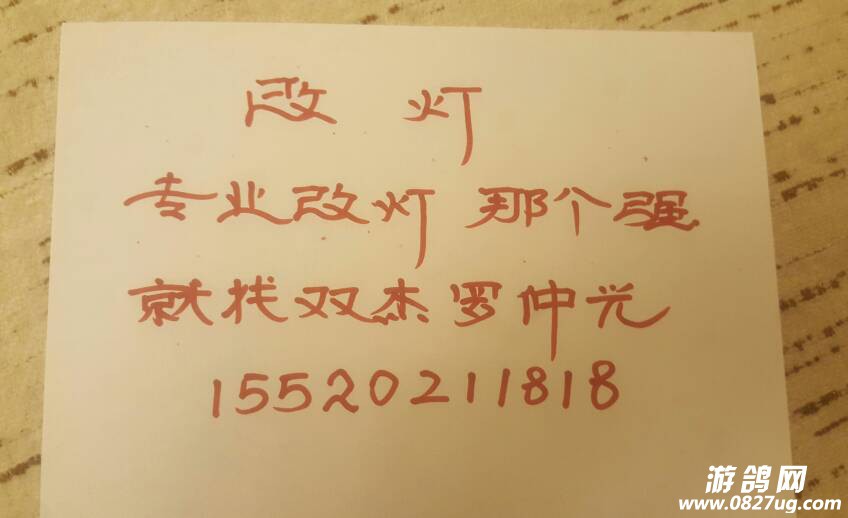 改灯
专业改灯 那个强
就找双杰罗仲光
15520211818
游鸽网
www.0827ug.com